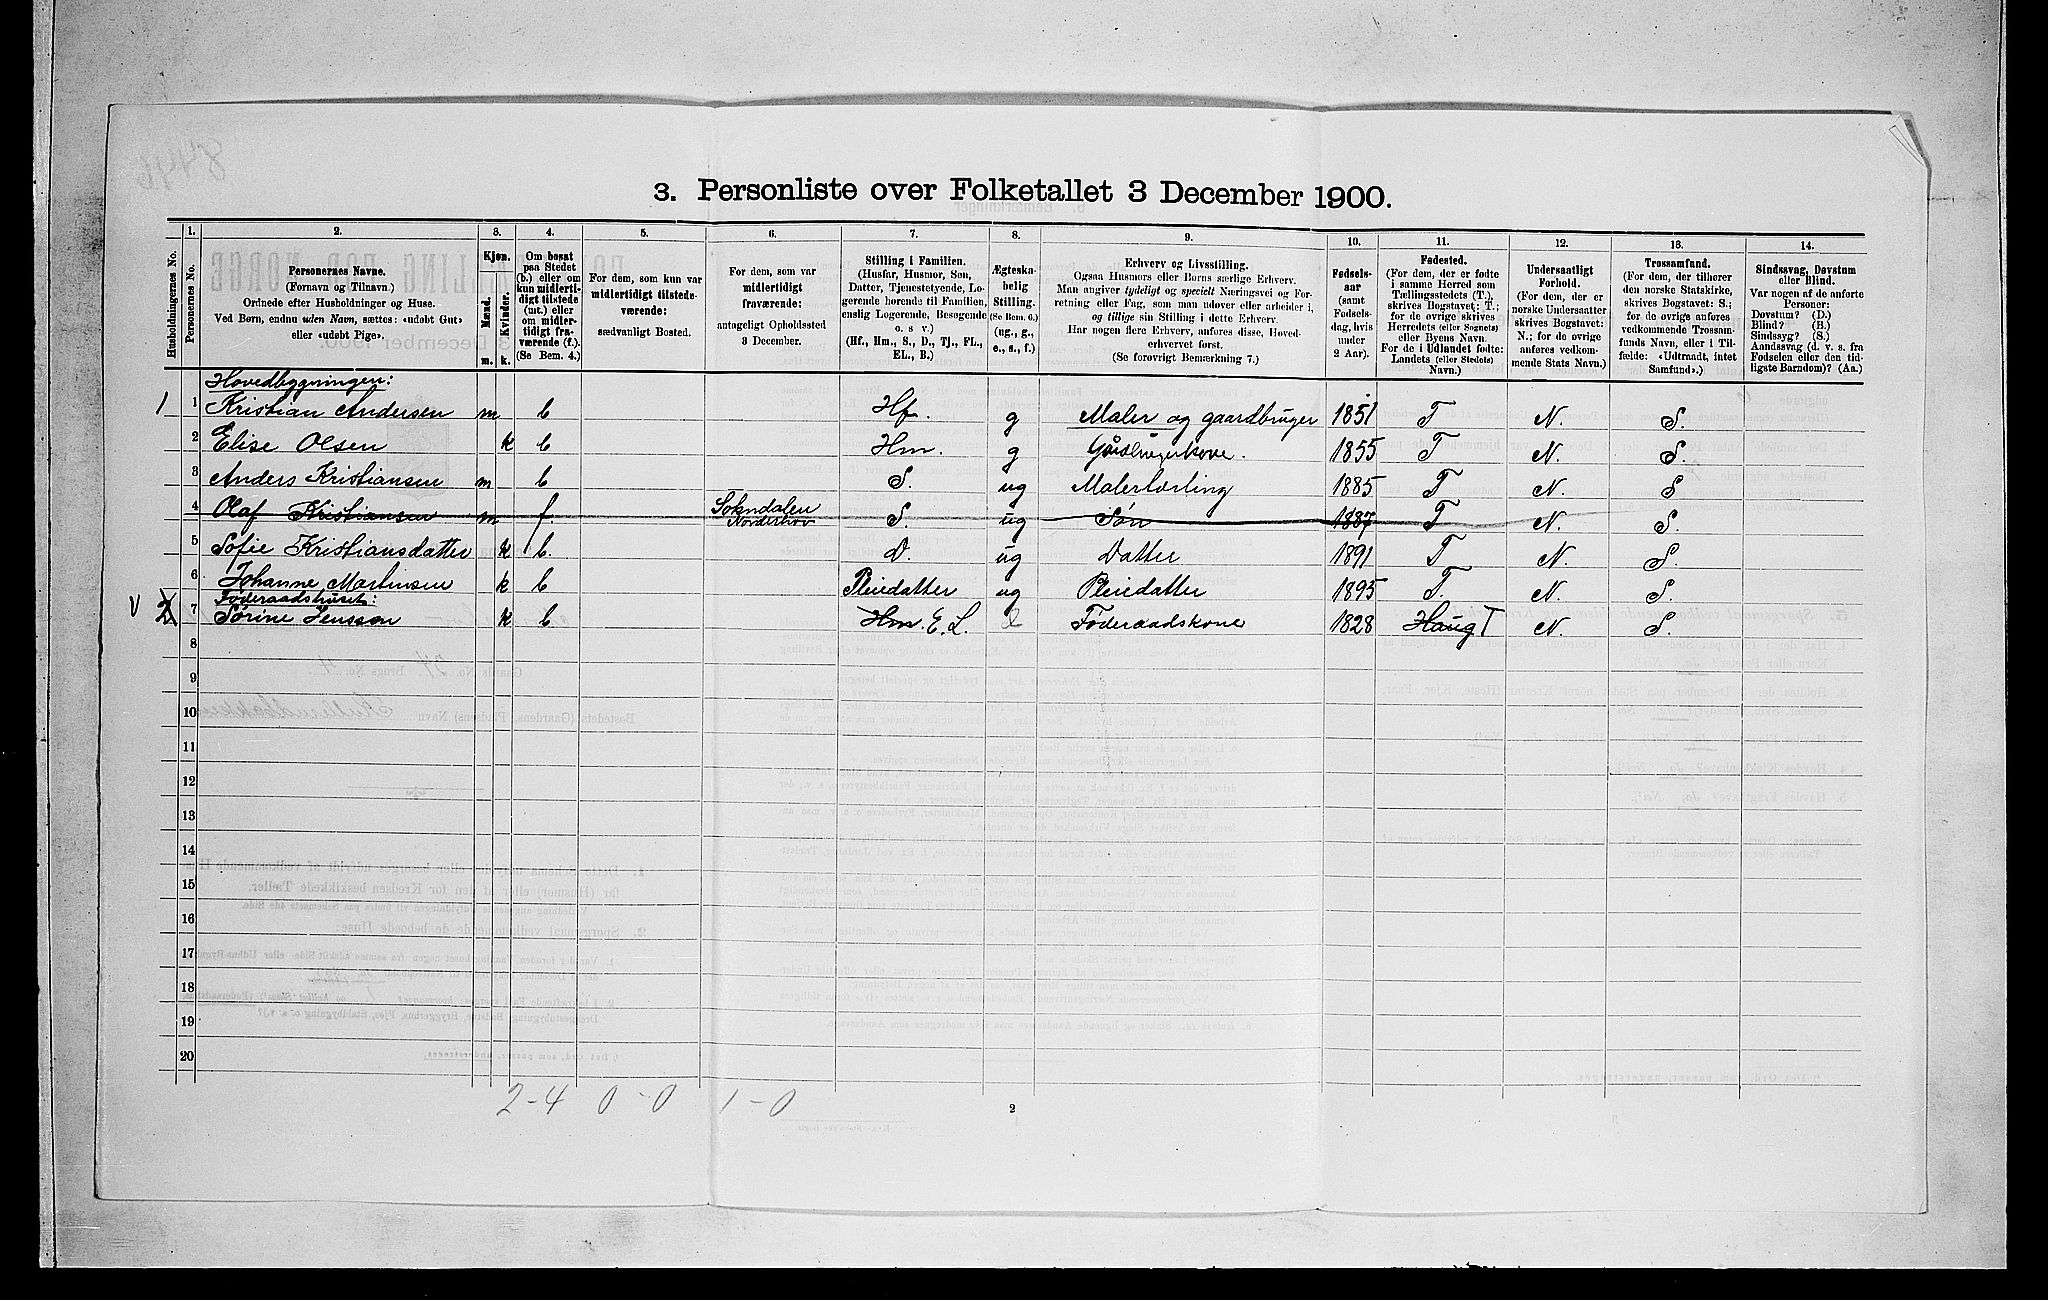 3. Personliste over Folketallet 3 December 1900.
Husholdningernes No.
1. Personernes No.
2. Personernes Navne. (Fornavn og Tilnavn.) Ordnede efter Husholdninger og Huse. Ved Børn, endnu uden Navn, sættes: «udøbt Gut» eller «udøbt Pige».
3. Kjøn. Mænd. m. Kvinder. k.
4. Om bosat paa Stedet (b.) eller om kun midlertidigt tilstede (mt.) eller om midlertidigt fraværende (f.). (Se Bem. 4.)
5. For dem, som kun var midlertidigt tilstedeværende: sædvanligt Bosted.
6. For dem, som var midlertidigt fraværende: antageligt Opholdssted 3 December.
7. Stilling i Familien. (Husfar, Husmor, Søn, Datter, Tjenestetyende, Logerende hørende til Familien, enslig Logerende, Besøgende o. s v.) (Hf., Hm., S., D., Tj., FL., EL., B.)
8. Ægteskabelig Stilling. (Se Bem. 6.) (ug., g., e., s., f.)
9. Erhverv og Livsstilling. Ogsaa Husmors eller Børns særlige Erhverv. Man angiver tydeligt og specielt Næringsvei og Forretning eller Fag, som man udøver eller arbeider i, og tillige sin Stilling i dette Erhverv. Har nogen flere Erhverv, anføres disse, Hovederhvervet først. (Se forøvrigt Bemærkning 7.)
10. Fødselsaar (samt Fødselsdag, hvis under 2 Aar).
11. Fødested. (For dem, der er fødte i samme Herred som Tællingsstedets (T.), skrives Bogstavet: T.; for de øvrige skrives Herredets (eller Sognets) eller Byens Navn. For de i Udlandet fødte: Landets (eller Stedets) Navn.)
12. Undersaatligt Forhold. (For dem, der er norske Undersaatter skrives Bogstavet: N.; for de øvrige anføres vedkommende Stats Navn.)
13. Trossamfund. (For dem, der tilhører den norske Statskirke, skrives Bogstavet: S.; for de øvrige anføres vedkommende Trossamfunds Navn, eller i Tilfælde: «Udtraadt, intet Samfund».)
14. Sindssvag, Døvstum eller Blind. Var nogen af de anførte Personer: Døvstum? (D.) Blind? (B.) Sindssyg? (S.) Aandssvag (d. v. s. fra Fødselen eller den tidligste Barndom)? (Aa.)
Hovedbygningen:
1 1 Kristian Andersen m b Hf. g Maler og gaardbruger 1851 T N. S.
2 Elise Olsen k b Hm. g Gårdbrugerkone. 1855 T N. S.
3 Anders Kristiansen m b S. ug Malerlærling 1885 T N. S
4 Olaf Kristiansen m f. Sokndalen Norderhov S ug Søn 1887 T N. S.
5 Sofie Kristiansdatter k b. D. ug Datter 1891 T N. S
6 Johanne Martinsen k b Pleiedatter ug Pleiedatter 1895 T. N. S.
Føderaadshuset:
v 2 7 Sørine Jensson k b Hm. E. L. e Føderaadskone 1828 Haug T N. S.
8
9
10
11
12
13
14
15
16
17
18
19
20
2-4 0-0 1-0
2